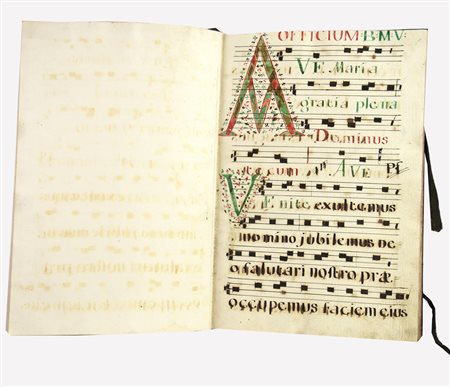 OFFICIUM·B·M·V·
AVE Maria
gratia plena
Dominus
te cum ij AVE Ps
VEnite exultemus
Domino jubilemus De
o salutari nostro præ
occupemus faciem eius